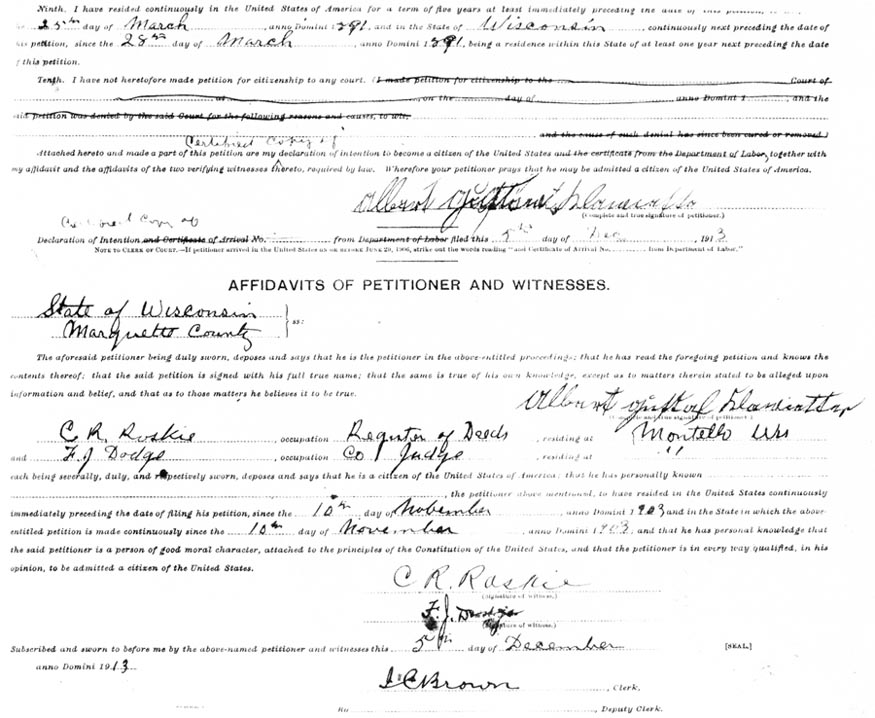 Ninth. I have resided continuously in the United States of America for a term of five years at least immediately preceding the date of this petition,
day of March, anno Domini 1891, and in the State of Wisconsin, continuously next preceding the date of
his petition, since the 28th day of March anno Domini 1891, being a residence within this State of at least one year next preceding the date
f this petition.
Tenth. I have not heretofore made petition for citizenship to any court. (I made petition for citizenship to the Court of
at , on the day of , anno Domini 1 , and the
said petition was denied by the said Court for the following reasons and causes, to wit,
and the cause of such denial has since been cured or removed.)
Certified Copy of
Attached hereto and made a part of this petition are my declaration of intention to become a citizen of the United States and the certificate from the Department of Labor, together with
my affidavit and the affidavits of the two verifying witnesses thereto, required by law. Wherefore your petitioner prays that he may be admitted a citizen of the United States of America.
Albert
(Complete and true signature of petitioner.)
Certified Copy of
Declaration of Intention and Certificate of Arrival No. from Department of Labor filed this 5th day of Dec, 1913
NOTE TO CLERK OF COURT.—If petitioner arrived in the United States on or before June 29, 1906, strike out the words reading "and Certificate of Arrival No. from Department of Labor."
AFFIDAVITS OF PETITIONER AND WITNESSES.
State of Wisconsin
Marquette County } ss:
The aforesaid petitioner being duly sworn, deposes and says that he is the petitioner in the above-entitled proceedings; that he has read the foregoing petition and knows the
contents thereof; that the said petition is signed with his full true name; that the same is true of his own knowledge, except as to matters therein stated to be alleged upon
information and belief, and that as to those matters he believes it to be true.
Albert Gustof
(Complete and true signature of petitioner.)
C R. Roskie, occupation Register of Deeds, residing at Montello Wis
and F. J Dodge, occupation Co Judge, residing at "
each being severally, duly, and respectively sworn, deposes and says that he is a citizen of the United States of America; that he has personally known
, the petitioner above mentioned, to have resided in the United States continuously
immediately preceding the date of filing his petition, since the 10th day of November, anno Domini 1903 and in the State in which the above-
entitled petition is made continuously since the 10th day of November, anno Domini 1903, and that he has personal knowledge that
the said petitioner is a person of good moral character, attached to the principles of the Constitution of the United States, and that the petitioner is in every way qualified, in his
opinion, to be admitted a citizen of the United States.
C R. Roskie
(Signature of witness.)
F. J. Dodge
(Signature of witness.)
Subscribed and sworn to before me by the above-named petitioner and witnesses this 5th day of December [SEAL.]
anno Domini 1913
J C Brown, Clerk.
By , Deputy Clerk.